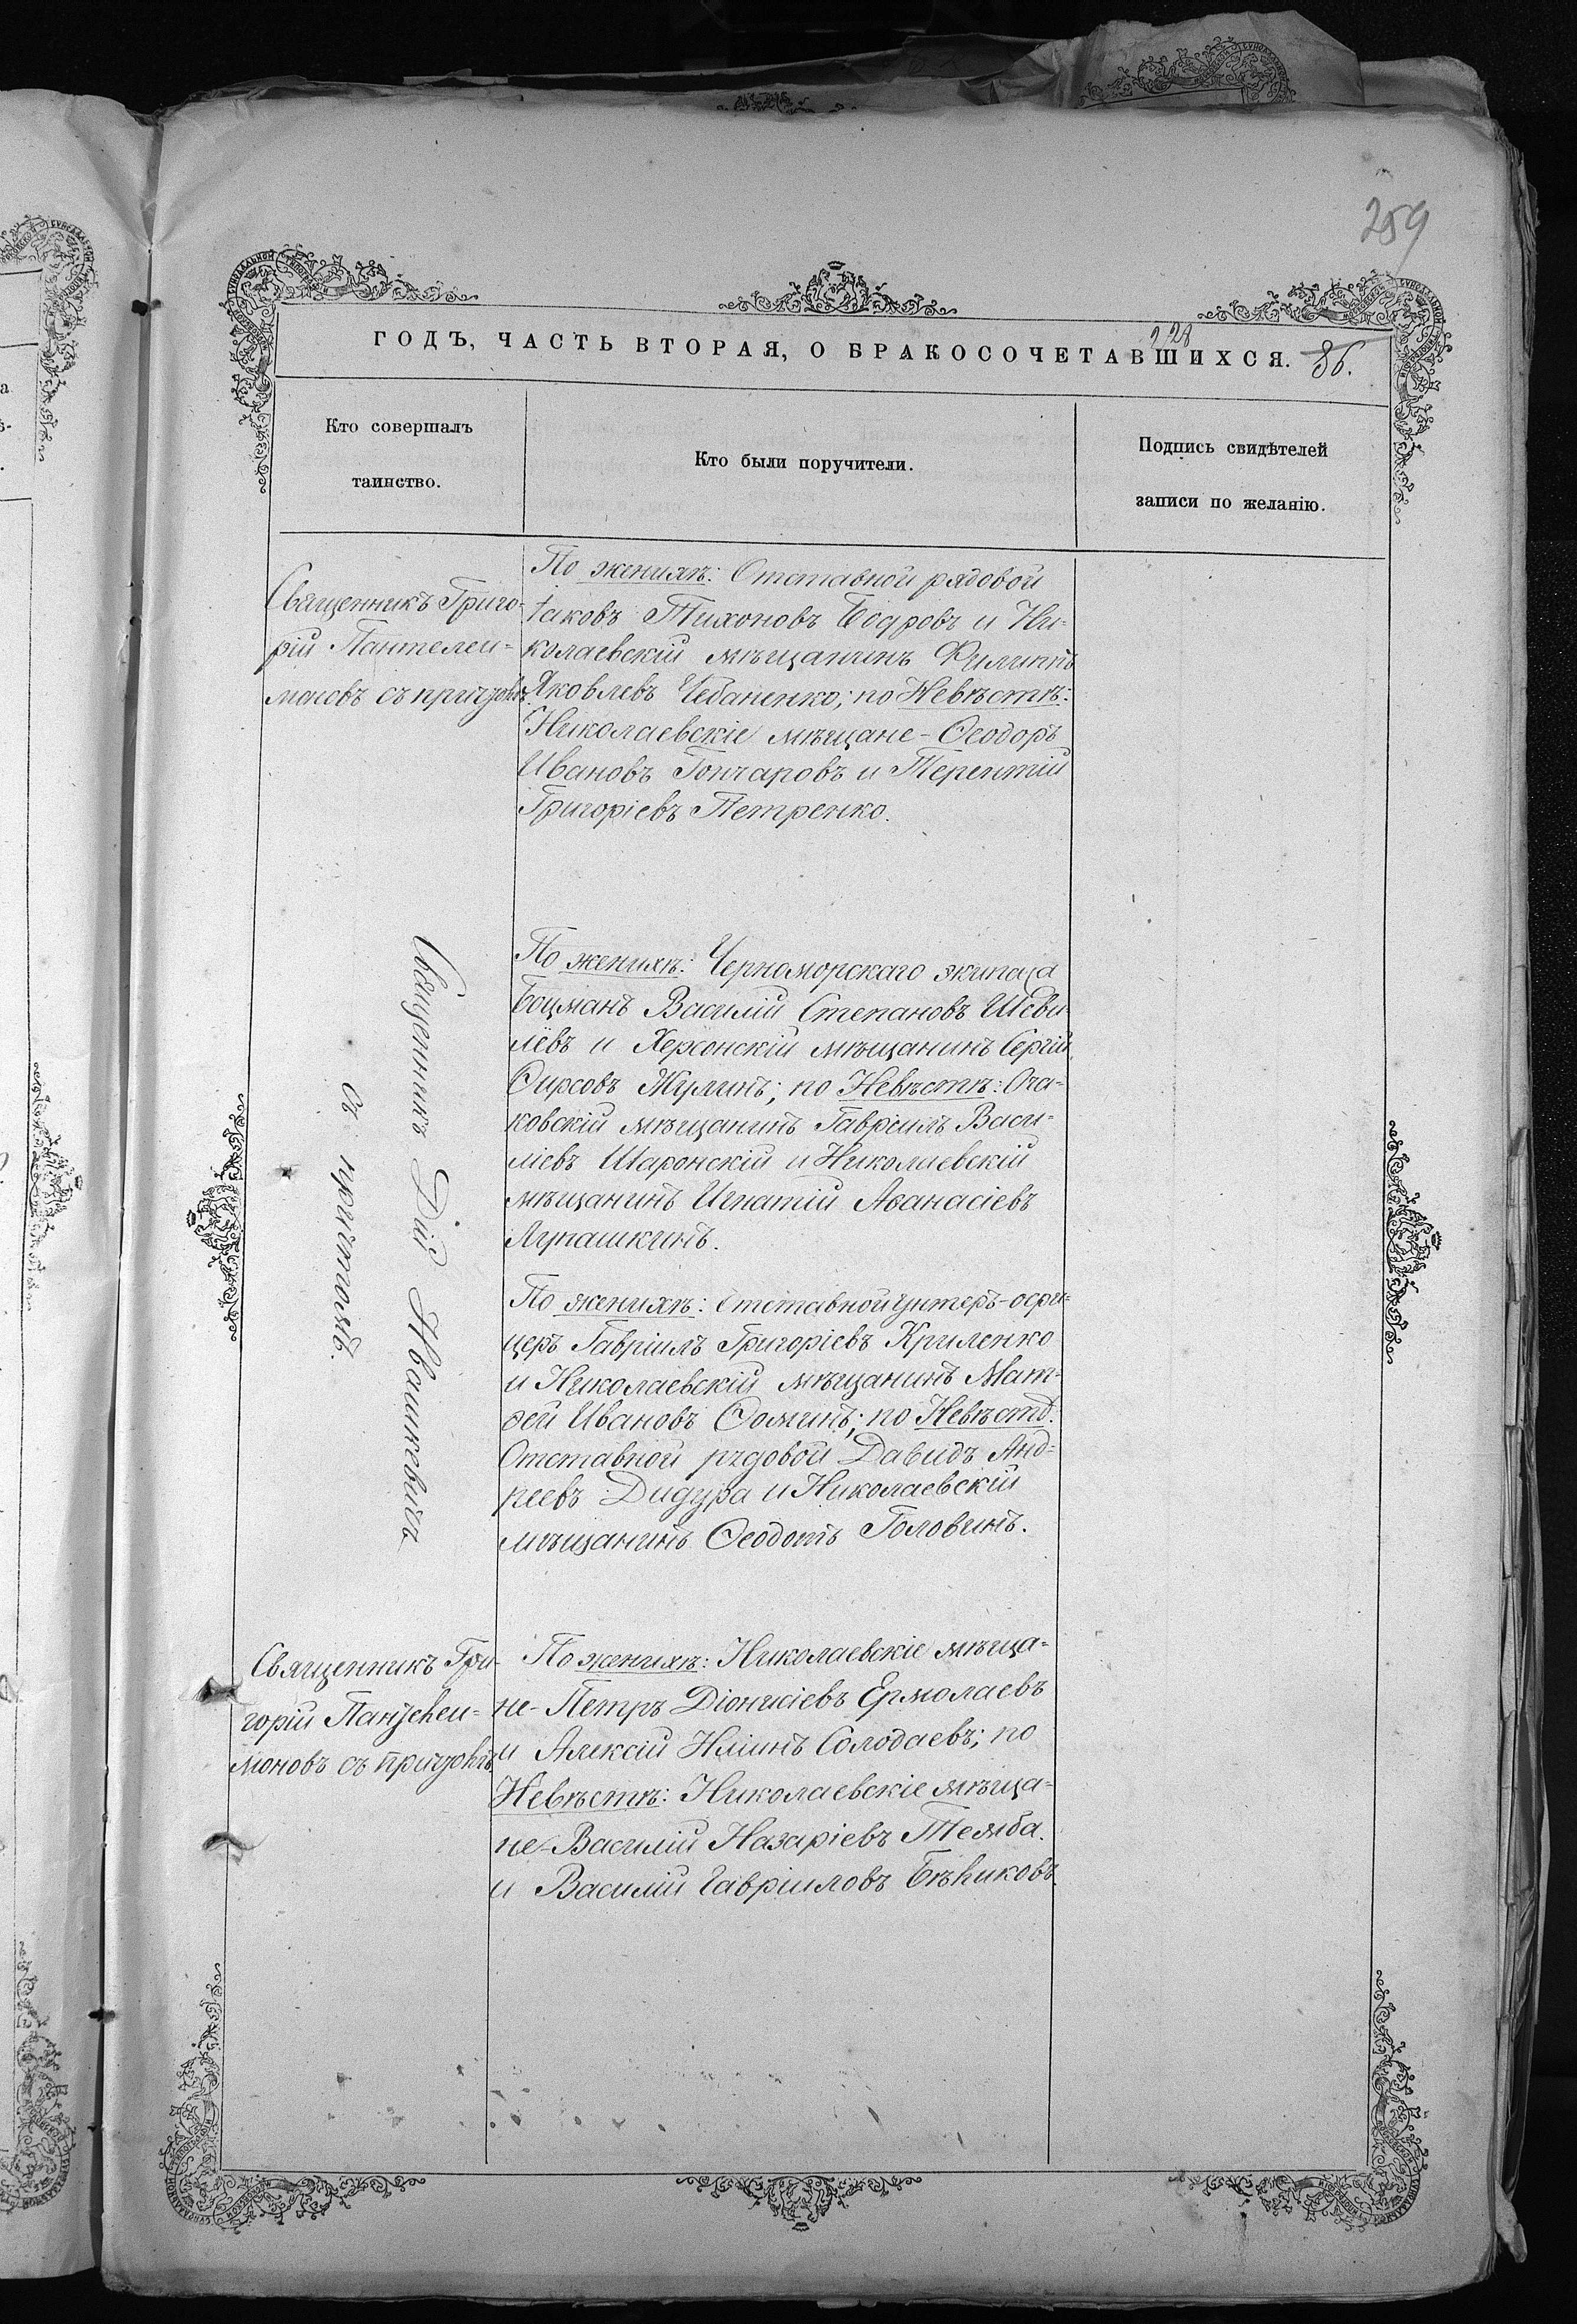 259
ГОДЪ, ЧАСТЬ ВТОРАЯ, О БРАКОСОЧЕТАВШИХСЯ.
228
86.
Кто совершалъ
таинство.
Кто были поручители.
Подпись свидѣтелей
записи по желанію.
Священникъ Григо-
рій Пантелеи-
моновъ съ причтомъ
По женихѣ: Отставной рядовой
Іаковъ Тихоновъ Бодровъ и Ни-
колаевскій мѣщанинъ Филиппъ
Яковлевъ Чебаненко; по Невѣстѣ:
Николаевскіе мѣщане - Ѳеодоръ
Ивановъ Гончаровъ и Терентій
Григоріевъ Петренко.
Священникъ Дій Ивашкевичъ
съ причтомъ.
По женихѣ: Черноморскаго экипажа
Боцманъ Василій Степановъ Шеви-
лёвъ и Херсонскій мѣщанинъ Сергій
Ѳирсовъ Жулинъ; по Невѣстѣ: Оча-
ковскій мѣщанинъ Гавріилъ Васи-
ліевъ Шаронскій и Николаевскій
мѣщанинъ Игнатій Аѳанасіевъ
Лупашкинъ.
По женихѣ: Отставной унтеръ-офи-
церъ Гавріилъ Григоріевъ Криленко
и Николаевскій мѣщанинъ Мат-
ѳей Ивановъ Ѳоминъ; по Невѣстѣ.
Отставной рядовой Давидъ Анд-
реевъ Дидура и Николаевскій
мѣщанинъ Ѳеодотъ Головинъ.
Священникъ Гри-
горій Пантелеи-
моновъ съ причтомъ
По женихѣ: Николаевскіе мѣща-
не - Петръ Діонисіевъ Ермолаевъ
и Алексій Иліинъ Солодаевъ; по
Невѣстѣ: Николаевскіе мѣща-
не - Василій Назаріевъ
и Василій Гавріиловъ Бѣликовъ.